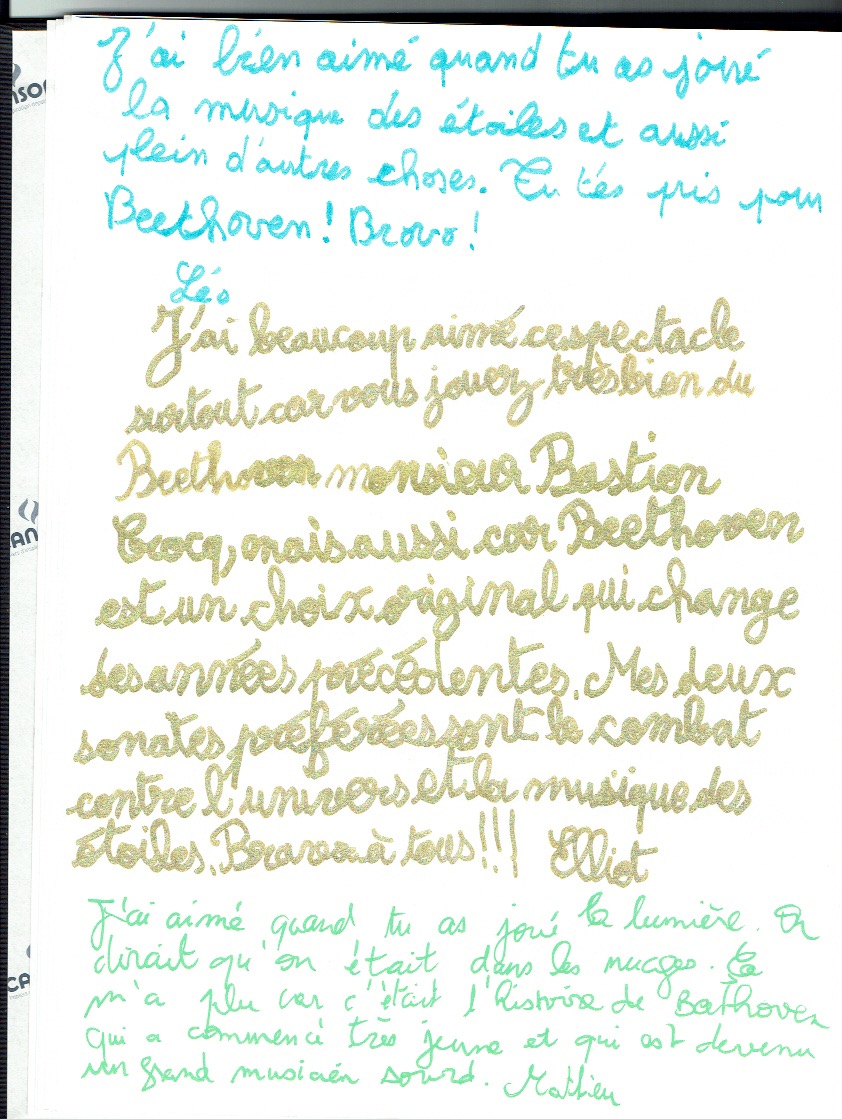 J'ai bien aimé quand tu as joué
la musique des étoiles et aussi
plein d'autres choses. Tu t'és pris pour
Beethoven ! Bravo !
Léo
J'ai beaucoup aimé ce spectacle
surtout car vous jouez très bien du
Beethoven monsieur Bastien
Crocq, mais aussi car Beethoven
est un choix original qui change
des années précédentes. Mes deux
sonates préférées sont le combat
contre l'univers et la musique des
étoiles. Bravo à tous !!! Elliot
J'ai aimé quand tu as joué la lumière. On
dirait qu'on était dans les nuages. Ça
m'a plu car c'était l'histoire de Bethoven
qui a commencé très jeune et qui est devenu
un grand musicien sourd. Mathieu